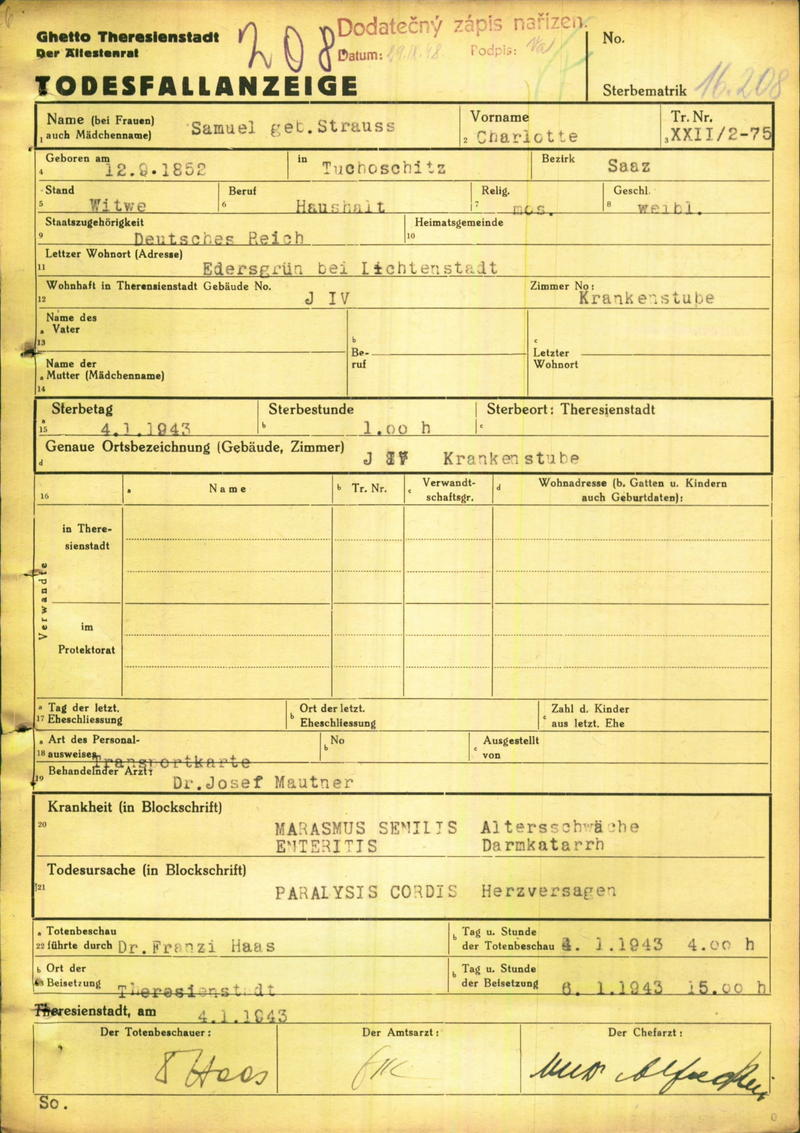 Ghetto Theresienstadt
Der Ältestenrat
208
Dodatečný zápis nařízen.
Datum:
Podpis:
No.
TODESFALLANZEIGE
Sterbematrik 16.208
Name (bei Frauen)
1 auch Mädchenname) Samuel geb.Strauss
Vorname
2 Charlotte
Tr. Nr.
3 XXII/2-75
Geboren am
4 12.9.1852
in Tuchoschitz
Bezirk Saaz
Stand
5 Witwe
Beruf
6 Haushalt
Relig.
7 mos.
Geschl.
8 weibl.
Staatszugehörigkeit
9 Deutsches Reich
Heimatsgemeinde
10
Lettzer Wohnort (Adresse)
11 Edersgrün bei Lichtenstadt
Wohnhaft in Therensienstadt Gebäude No.
12 J IV
Zimmer No:
Krankenstube
Name des
a Vater
13
Name der
a Mutter (Mädchenname)
14
b
Be-
ruf
c
Letzter
Wohnort
Sterbetag
a
15 4.1.1943
Sterbestunde
b 1.oo h
Sterbeort: Theresienstadt
c
Genaue Ortsbezeichnung (Gebäude, Zimmer)
d J IV Krankenstube
16
a Name
b Tr. Nr.
c Verwandt-
schaftsgr.
d Wohnadresse (b. Gatten u. Kindern
auch Geburtdaten):
Verwandte
in There-
sienstadt
im
Protektorat
a Tag der letzt.
17 Eheschliessung
b Ort der letzt.
Eheschliessung
c Zahl d. Kinder
aus letzt. Ehe
a Art des Personal-
18 ausweises Transportkarte
b No
c Ausgestellt
von
19 Behandelnder Arzt
Dr.Josef Mautner
Krankheit (in Blockschrift)
20 MARASMUS SENILIS Altersschwäche
ENTERITIS Darmkatarrh
Todesursache (in Blockschrift)
21 PARALYSIS CORDIS Herzversagen
a Totenbeschau
22 führte durch Dr.Franzi Haas
b Tag u. Stunde
der Totenbeschau 4. 1.1943 4.oo h
b Ort der
Beisetzung Theresienstadt
b Tag u. Stunde
der Beisetzung 6. 1.1943 15.oo h
Theresienstadt, am 4.1.1943
Der Totenbeschauer:
Der Amtsarzt:
Der Chefarzt:
F Haas
So.